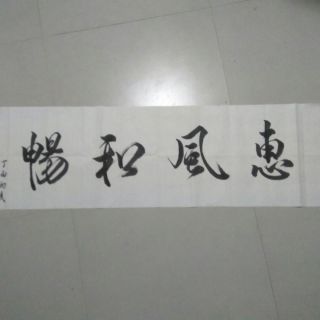 惠風和暢
丁酉初